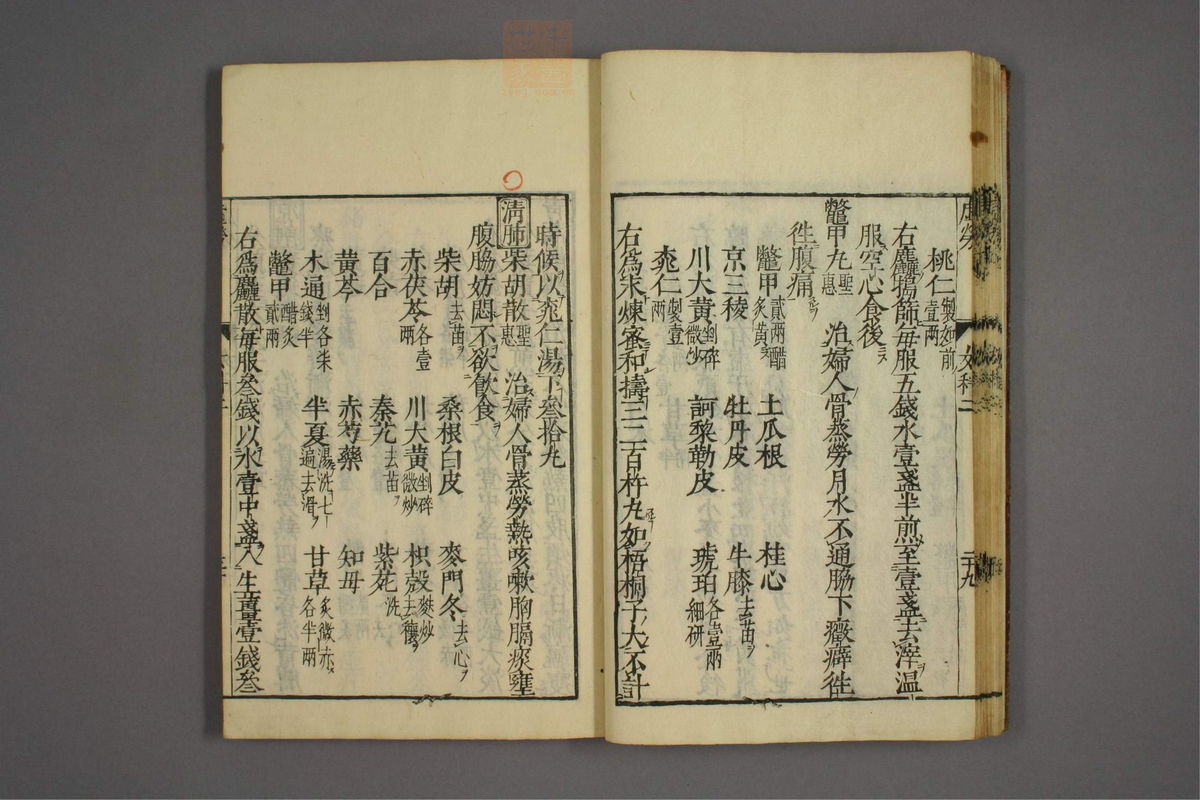 桃仁 製如前壹兩
右麤擣篩每服五錢水壹盞半煎至壹盞去滓温
服空心食後
鼈甲丸 聖惠 治婦人骨蒸勞月水不通脇下癥癖徃
徃腹痛
鼈甲 貳兩醋炙黃 土瓜根 桂心
京三稜 牡丹皮 牛膝 去苗
川大黃 剉碎微炒 訶棃勒皮 琥珀 各壹兩細研
桃仁 製壹兩
右爲末煉蜜和擣三二百杵丸如梧桐子大不計
女科二
二十九
時候以桃仁湯下叁拾丸
清肺 柴胡散 聖惠 治婦人骨蒸勞熱咳嗽胸膈痰壅
腹脇妨悶不欲飲食
柴胡 去苗 桑根白皮 麥門冬 去心
赤茯苓 各壹兩 川大黃 剉碎微炒 枳殼 麩炒去穰
百合 秦艽 去苗 紫菀 洗
黃芩 赤芍藥 知母
木通 剉各柒錢半 半夏 湯洗七遍去滑 甘草 炙微赤各半兩
鼈甲 醋炙貳兩
右爲麤散每服叁錢以水壹中盞入生薑壹錢叁